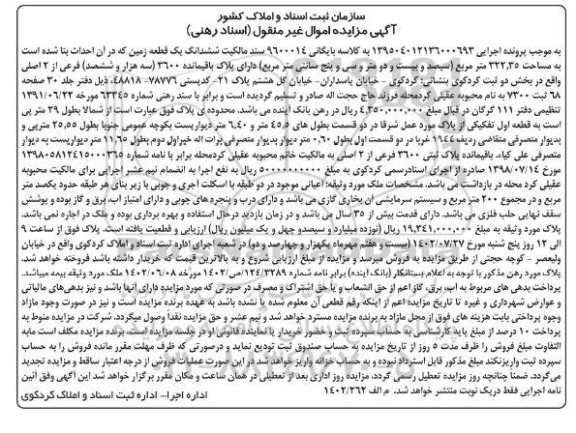 سازمان ثبت اسناد و املاک کشور
آگهی مزایده اموال غیر منقول (اسناد رهنی)
به موجب پرونده اجرایی ۱۳۹۵۰۴۰۱۲۱۳۶۰۰۰۶۹۳ به کلاسه بایگانی ۹۶۰۰۰۱۴ سند مالکیت ششدانگ یک قطعه زمین که در آن احداث بنا شده است
به مساحت ۳۲۲,۳۵ متر مربع (سیصد و بیست و دو متر و سی و پنج سانتی متر مربع) دارای پلاک باقیمانده ۳۶۰۰ (سه هزار و ششصد) فرعی از ۲ اصلی
واقع در بخش دو ثبت کردکوی بنشانی: کردکوی - خیابان پاسداران- خیابان گل هشتم پلاک ۲۱- کدپستی ۷۸۷۷۶-۴۸۸۱۸، ذیل دفتر جلد ۳۰ صفحه
۶۸ ثبت ۷۳۰۰ به نام محبوبه عقیلی کردمحله فرزند حاج حجت اله صادر و تسلیم گردیده است و برابر با سند رهنی شماره ۶۳۳۴۵ مورخه ۱۳۹۱/۰۶/۲۲
تنظیمی دفتر ۱۱۱ گرگان در قبال مبلغ ۴,۳۵۰,۰۰۰,۰۰۰ ریال در رهن بانک آینده می باشد. محدوده ی پلاک فوق عبارت است از شمالا بطول ۲۹ متر پی
است به قطعه اول تفکیکی از پلاک مورد عمل شرقا در دو قسمت بطول های ۵,۴۵ متر و ۶,۴۰ متر دیواریست بکوچه عمومی جنوبا بطول ۲۵,۵۵ مترپی و
پدیوار متصرفی متقاضی ردیف ۱۹۴۴ غربا در دو قسمت اول بطول ۰,۶۰ متر دیوار پدیوار متصرفی برات اله خیراول دوم بطول ۱۱,۶۵ متر دیواریست به دیوار
متصرفی علی کیاء، باقیمانده پلاک ثبتی ۳۶۰۰ فرعی از ۲ اصلی به مالکیت خانم محبوبه عقیلی کردمحله برابر با نامه شماره ۱۳۹۸۰۵۸۱۲۴۱۵۰۰۰۳۶۵
مورخ ۱۳۹۸/۰۷/۱۴ صادره از اجرای اسنادرسمی کردکوی به مبلغ ۵۰۰۰۰۰۰۰۰۰ ریال به نفع اجرا به انضمام نیم عشر اجرایی برای مالکیت محبوبه
عقیلی کرد محله در بازداشت می باشد. مشخصات ملک مورد وثیقه: اعیانی موجود در دو طبقه با اسکلت آجری و چوبی با زیر بنای هر طبقه حدود یکصد متر
مربع و در مجموع ۲۰۰ متر مربع و سیستم سرمایشی آن بخاری گازی می باشد و دارای درب و پنجره های چوبی و دارای امتیاز آب، برق و گاز بوده و پوشش
سقف نهایی حلب فلزی می باشد. دارای قدمت بیش از ۳۵ سال می باشد و در زمان بازدید درحال استفاده و بهره برداری بوده و ملک در اجاره نمی باشد.
پلاک مورد وثیقه به مبلغ ۱۹,۳۴۱,۰۰۰,۰۰۰ ریال (نوزده میلیارد و سیصدو چهل و یک میلیون ریال) ارزیابی و قطعیت یافته است. پلاک فوق از ساعت ۹
الی ۱۲ روز پنج شنبه مورخ ۱۴۰۲/۰۷/۲۷ (بیست و هفتم مهرماه یکهزار و چهارصد و دو) در شعبه اجرای اداره ثبت اسناد و املاک کردکوی واقع در خیابان
ولیعصر - کوچه حجتی از طریق مزایده به فروش میرسد و مزایده از مبلغ ارزیابی شروع و به بالاترین قیمت که خریدار داشته باشد فروخته خواهد شد.
پلاک مورد رهن مذکور با توجه به اعلام بستانکار (بانک آینده) برابر نامه شماره ۱۲۴/۳۲۸۹/ص/۱۴۰۲ مورخه ۱۴۰۲/۰۶/۰۸ ملک مورد وثیقه بیمه میباشد.
پرداخت بدهی های مربوط به آب، برق، گاز اعم از حق انشعاب و یا حق اشتراک و مصرف در صورتی که مورد مزایده دارای آنها باشد و نیز بدهی‌های مالیاتی
و عوارض شهرداری و غیره تا تاریخ مزایده اعم از اینکه رقم قطعی آن معلوم شده یا نشده باشد به عهده برنده مزایده است و نیز در صورت وجود مازاد
وجوه پرداختی بابت هزینه های فوق از محل مازاد به برنده مزایده مسترد خواهد شد و نیم عشر و حق مزایده نقدا وصول میگردد. شرکت در مزایده منوط به
پرداخت ۱۰ درصد از مبلغ پایه کارشناسی به حساب سپرده ثبت و حضور خریدار یا نماینده قانونی او در جلسه مزایده است. برنده مزایده مکلف است مابه
التفاوت مبلغ فروش را ظرف مدت ۵ روز از تاریخ مزایده به حساب صندوق ثبت تودیع نماید و درصورتی که ظرف مهلت مقرر مانده فروش را به حساب
سپرده ثبت واریزنکند مبلغ مذکور قابل استرداد نبوده و به حساب خزانه واریز خواهد شد. در این صورت عملیات فروش از درجه اعتبار ساقط و مزایده تجدید
می‌گردد. ضمنا چنانچه روز مزایده تعطیل رسمی گردد، مزایده روز اداری بعد از تعطیلی در همان ساعت و مکان مقرر برگزار خواهد شد این آگهی وفق آئین
نامه اجرایی فقط دریک نوبت منتشر خواهد شد. م الف ۱۴۰۲/۲۶۲
اداره اجرا- اداره ثبت اسناد و املاک کردکوی